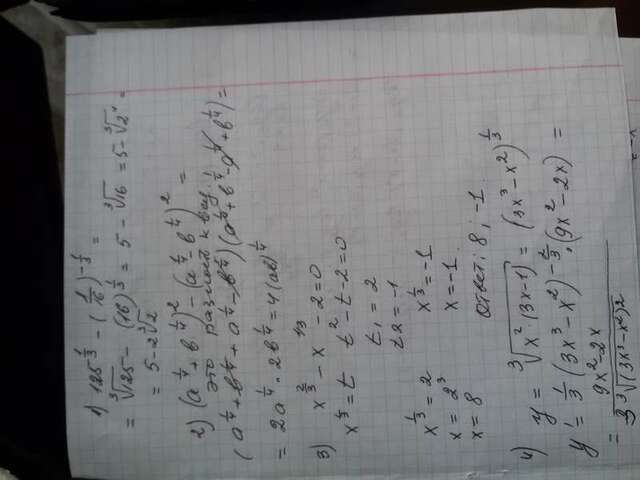 1) 125^{1/3} - (1/16)^{-1/3} =
= ∛125 - (16)^{1/3} = 5 - ∛16 = 5 - ∛2⁴ =
= 5 - 2∛2
2) (a^{1/4} + b^{1/4})² - (a^{1/4} - b^{1/4})² =
это разность квад.!
(a^{1/4} + b^{1/4} + a^{1/4} - b^{1/4})(a^{1/4} + b^{1/4} - a^{1/4} + b^{1/4}) =
= 2a^{1/4} · 2b^{1/4} = 4(ab)^{1/4}
3) x^{2/3} - x^{1/3} - 2 = 0
x^{1/3} = t t² - t - 2 = 0
t₁ = 2
t₂ = -1
x^{1/3} = 2 x^{1/3} = -1
x = 2³ x = -1
x = 8
Ответ: 8; -1
4) y = ∛(x²·(3x-1)) = (3x³ - x²)^{1/3}
y' = 1/3 (3x³ - x²)^{-2/3} · (9x² - 2x) =
= (9x² - 2x)/(3∛((3x³ - x²)²))